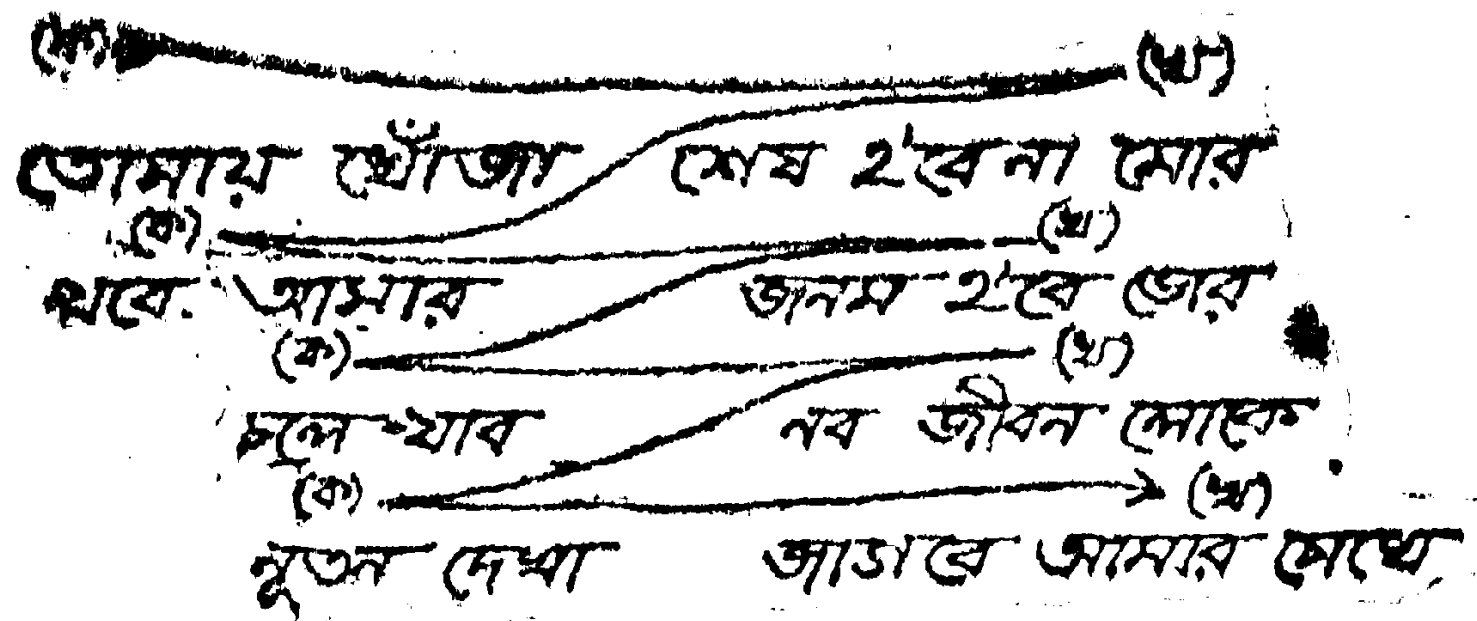 (ক) (খ)
তোমায় খোঁজা শেষ হবে না মোর
(ক) (খ)
যবে আমার জনম হবে ভোর
(ক) (খ)
চলে যাব নব জীবন লোকে
(ক) (খ)
নূতন দেখা জাগবে আমার চোখে